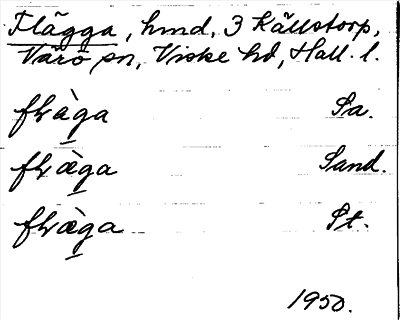 Flägga, hmd, 3 Källstorp,
Värö sn, Viske hd, Hall. l.
flàga Sa.
flæ̀ga Sand.
flæ̀ga St.
1950.